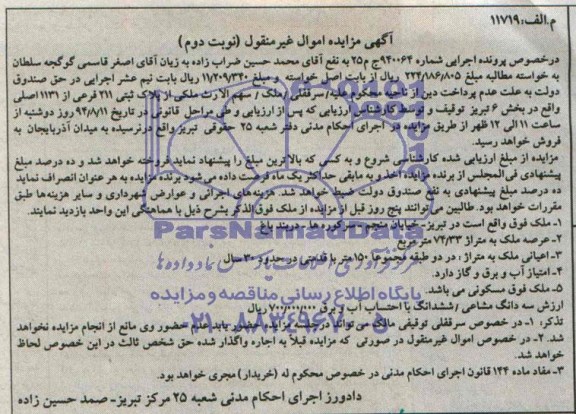 م.الف: ۱۱۷۱۹
آگهی مزایده اموال غیرمنقول (نوبت دوم)
درخصوص پرونده اجرایی شماره ۹۴۰۰۶۴ج م۲۵ به نفع آقای محمد حسین ضراب زاده به زیان آقای اصغر قاسمی گوگجه سلطان
به خواسته مطالبه مبلغ ۲۲۴/۸۸۶/۸۰۵ ریال از بابت اصل خواسته و مبلغ ۱۱/۲۰۹/۳۴۰ ریال بابت نیم عشر اجرایی در حق صندوق
دولت به علت عدم پرداخت دین از ناحیه محکوم علیه/سرقفلی/ملک/ سهم الارث ملکی از پلاک ثبتی ۲۱۱ فرعی از ۱۱۳۱ اصلی
واقع در بخش ۶ تبریز توقیف و توسط کارشناس ارزیابی که پس از ارزیابی و طی مراحل قانونی در تاریخ ۹۴/۸/۱۱ روز دوشنبه از
ساعت ۱۱ الی ۱۲ ظهر از طریق مزایده در اجرای احکام مدنی دفتر شعبه ۲۵ حقوقی تبریز واقع درنرسیده به میدان آذربایجان به
فروش خواهد رسید.
مزایده از مبلغ ارزیابی شده کارشناسی شروع و به کسی که بالاترین مبلغ را پیشنهاد نماید فروخته خواهد شد و ده درصد مبلغ
پیشنهادی فی المجلس از برنده مزایده اخذ و به مابقی حداکثر یک ماه فرصت داده می شود برنده مزایده به هر عنوان انصراف نماید
ده درصد مبلغ پیشنهادی به نفع صندوق دولت ضبط خواهد شد. هزینه های اجرائی و عوارض شهرداری و سایر هزینها طبق
مقررات خواهد بود. طالبین می توانند پنج روز قبل از مزایده از ملک فوق الذکر بشرح ذیل با هماهنگی این واحد بازدید نمایند.
۱- ملک فوق واقع است در تبریز- خیابان منجم- سرکوره ها- دربند باغ
۲- عرصه ملک به متراژ ۷۴/۳۳ متر مربع
۳- اعیانی ملک به متراژ : در دو طبقه مجموعا ۱۵۰ متر با قدمتی در حدود ۳۰ سال
۴- امتیاز آب و برق و گاز دارد.
۵- ملک فوق مسکونی می باشد.
ارزش سه دانگ مشاعی / ششدانگ با احتساب آب و برق ۷۰۰/۰۰۰/۰۰۰ ریال
تذکر: ۱- در خصوص سرقفلی توقیفی مالک می تواند درجلسه مزایده حضور یابد عدم حضور وی مانع از انجام مزایده نخواهد
شد. ۲- در خصوص اموال غیرمنقول در صورتی که مزایده قبلا به اجاره واگذار شده حق شخص ثالث در این خصوص لحاظ
خواهد شد.
۳- مفاد ماده ۱۴۴ قانون اجرای احکام مدنی در خصوص محکوم له (خریدار) مجری خواهد بود.
دادورز اجرای احکام مدنی شعبه ۲۵ مرکز تبریز- صمد حسین زاده
ParsNamadData
پایگاه اطلاع رسانی مناقصه و مزایده
۰۲۱-۸۸۳۴۹۶۷۰